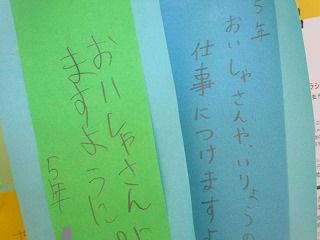 5年
おいしゃさんや、いりょうの
仕事につけますよ
おいしゃさんに
ますように
5年